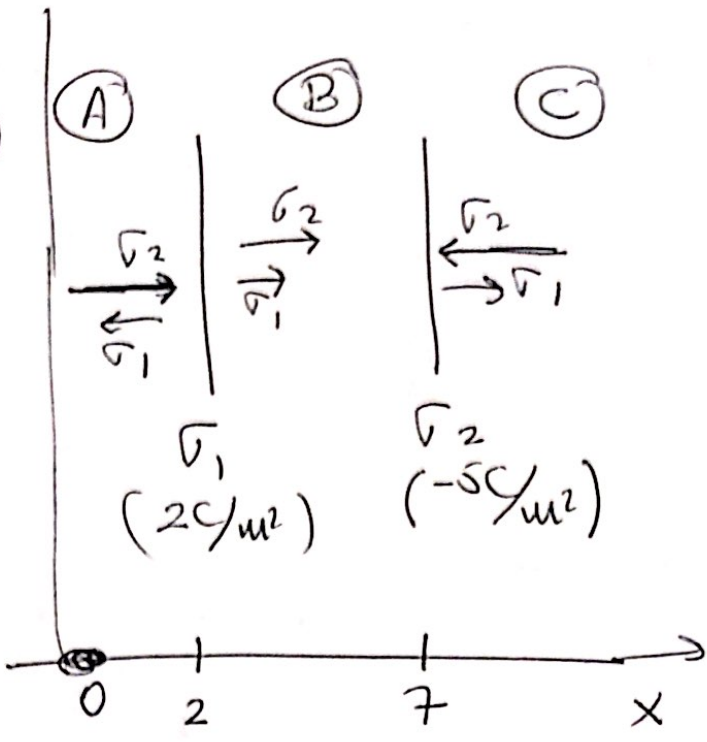 A B C
σ2 σ2 σ2
σ1 σ1 σ1
σ1 σ2
(2C/m²) (-5C/m²)
0 2 7 x